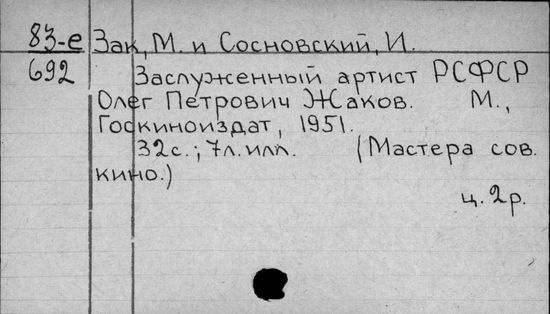 83-е Зак, М. и Сосновский, И.
692 Заслуженный артист РСФСР
Олег Петрович Жаков. М.,
Госкиноиздат, 1951.
32с.; 7л.илл. (Мастера сов.
кино.)
ц. 2р.